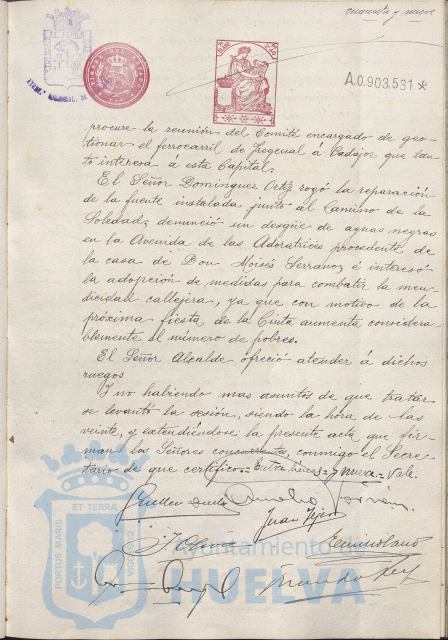 cincuenta y nueve
A.0.903.531*
procure la reunión del Comité encargado de ges-
tionar el ferrocarril de Fregenal á Badajoz que tan-
to interesa á esta Capital.
El Señor Dominguez Ortiz rogó la reparación
de la fuente instalada junto al Camino de la
Soledad, denunció un desgüe de aguas negras
en la Avenida de las Adoratrices procedente de
la casa de Don Moisés Serrano, é interesó
la adopción de medidas para combatir la men-
dicidad callejera, ya que con motivo de la
próxima fiesta de la Cinta aumenta considera
blemente el número de pobres.
El Señor Alcalde ofreció atender á dichos
ruegos
Y no habiendo mas asuntos de que tratar
se levantó la sesión, siendo la hora de las
veinte, y extendiéndose la presente acta que fir-
man los Señores concurrentes, conmigo el Secre-
tario de que certifico.= Entre líneas= y nueva= Vale.
Juan Tejero
PORTUS MARIS
ET TERRÆ
CUSTODIA
Ayuntamiento de
HUELVA